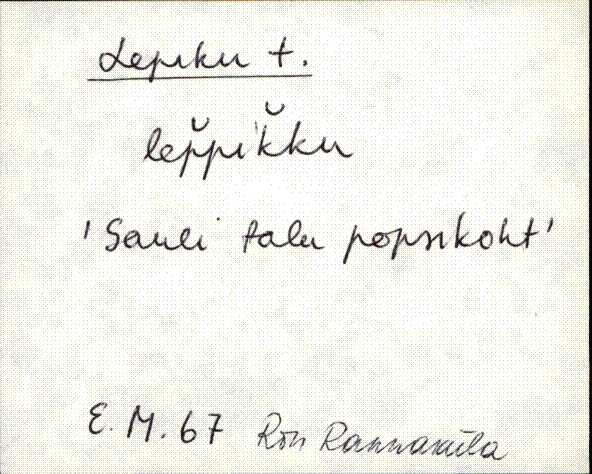 Lepiku t.
lep̆pik̆ku
'Sauli talu popsikoht'
E. M. 67 Rõu Rannaküla